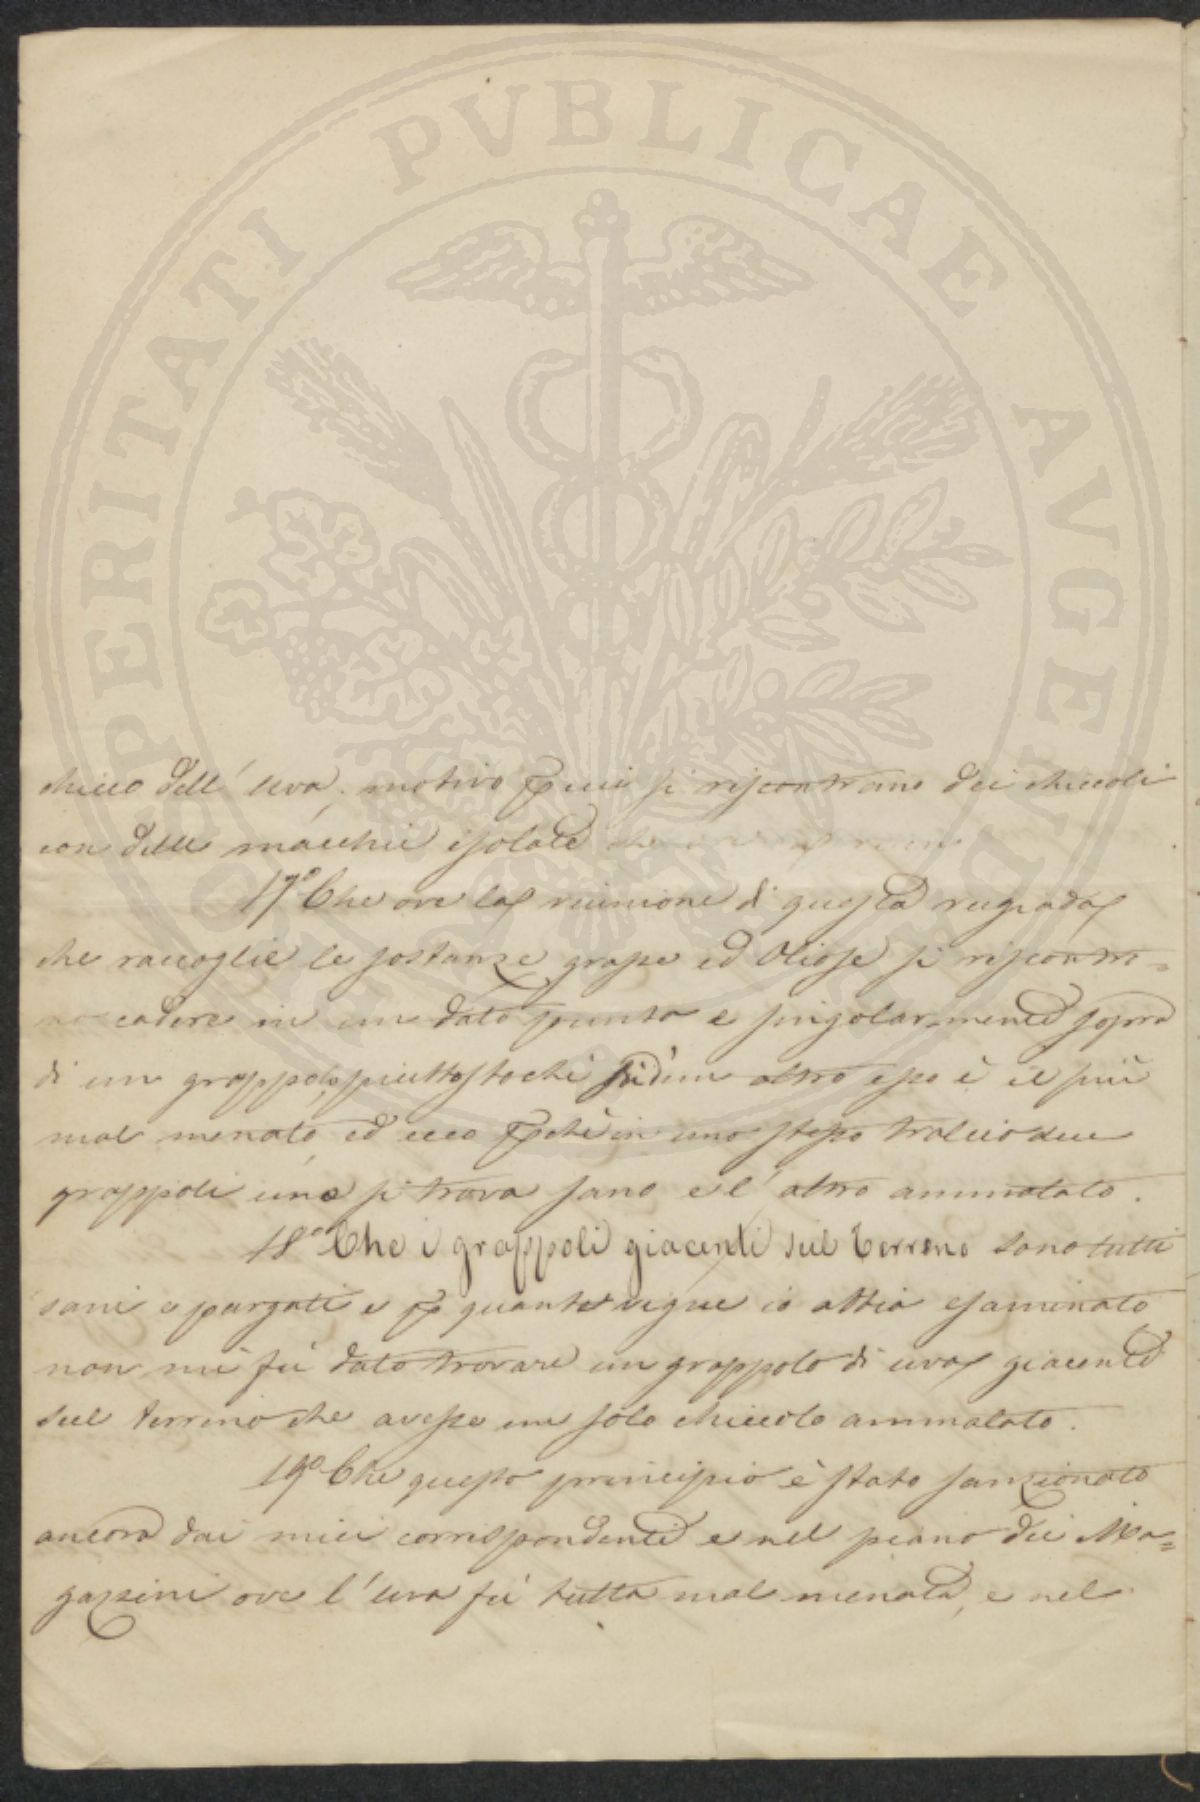 PROSPERITATI PVBLICAE AVGENDAE
chicco dell' uva, motivo p cui si riscontrano dei chiccoli
con delle macchie isolate
17° Che ove la riunione di questa rugiada
che raccoglie le sostanze grasse ed Oliose si riscontra=
no cadere in un dato punto e singolarmente sopra
di un grappolo, piuttostochè su d'un altro esso è il più
mal menato, ed ecco pchè in uno stesso tralcio due
grappoli uno si trova sano e l' altro ammalato.
18° Che i grappoli giacenti sul terreno sono tutti
sani e purgati e p quante vigne io abbia esaminato
non mi fù dato trovare un grappolo di uva giacente
sul terreno che avesse un solo chiccolo ammalato.
19° Che questo principio è stato sanzionato
ancora dai miei corrispondenti e nel piano dei Ma=
gazzini ove l' uva fù tutta mal menata, e nel